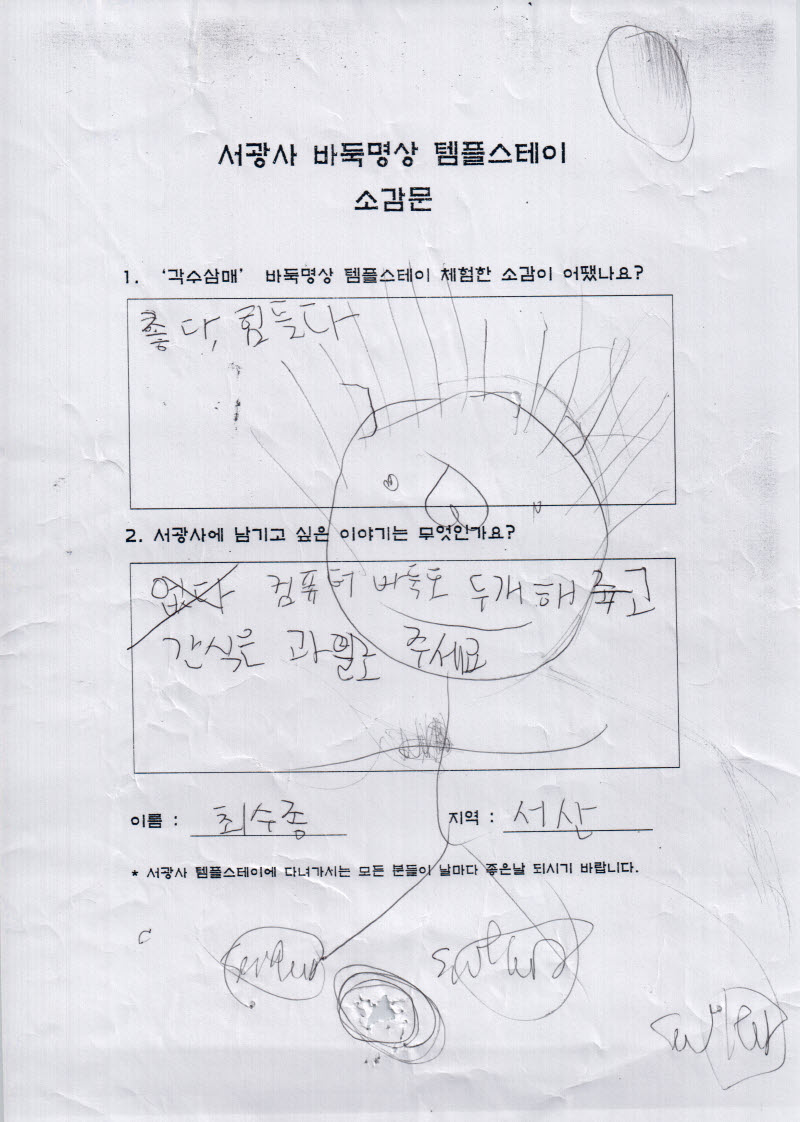 서광사 바둑명상 템플스테이
소감문
1. ‘각수삼매’ 바둑명상 템플스테이 체험한 소감이 어땠나요?
좋다, 힘들다
2. 서광사에 남기고 싶은 이야기는 무엇인가요?
없다 컴퓨터 바둑도 두개 해 주고
간식은 과일로 주세요
이름 : 최수종 지역 : 서산
* 서광사 템플스테이에 다녀가시는 모든 분들이 날마다 좋은날 되시기 바랍니다.